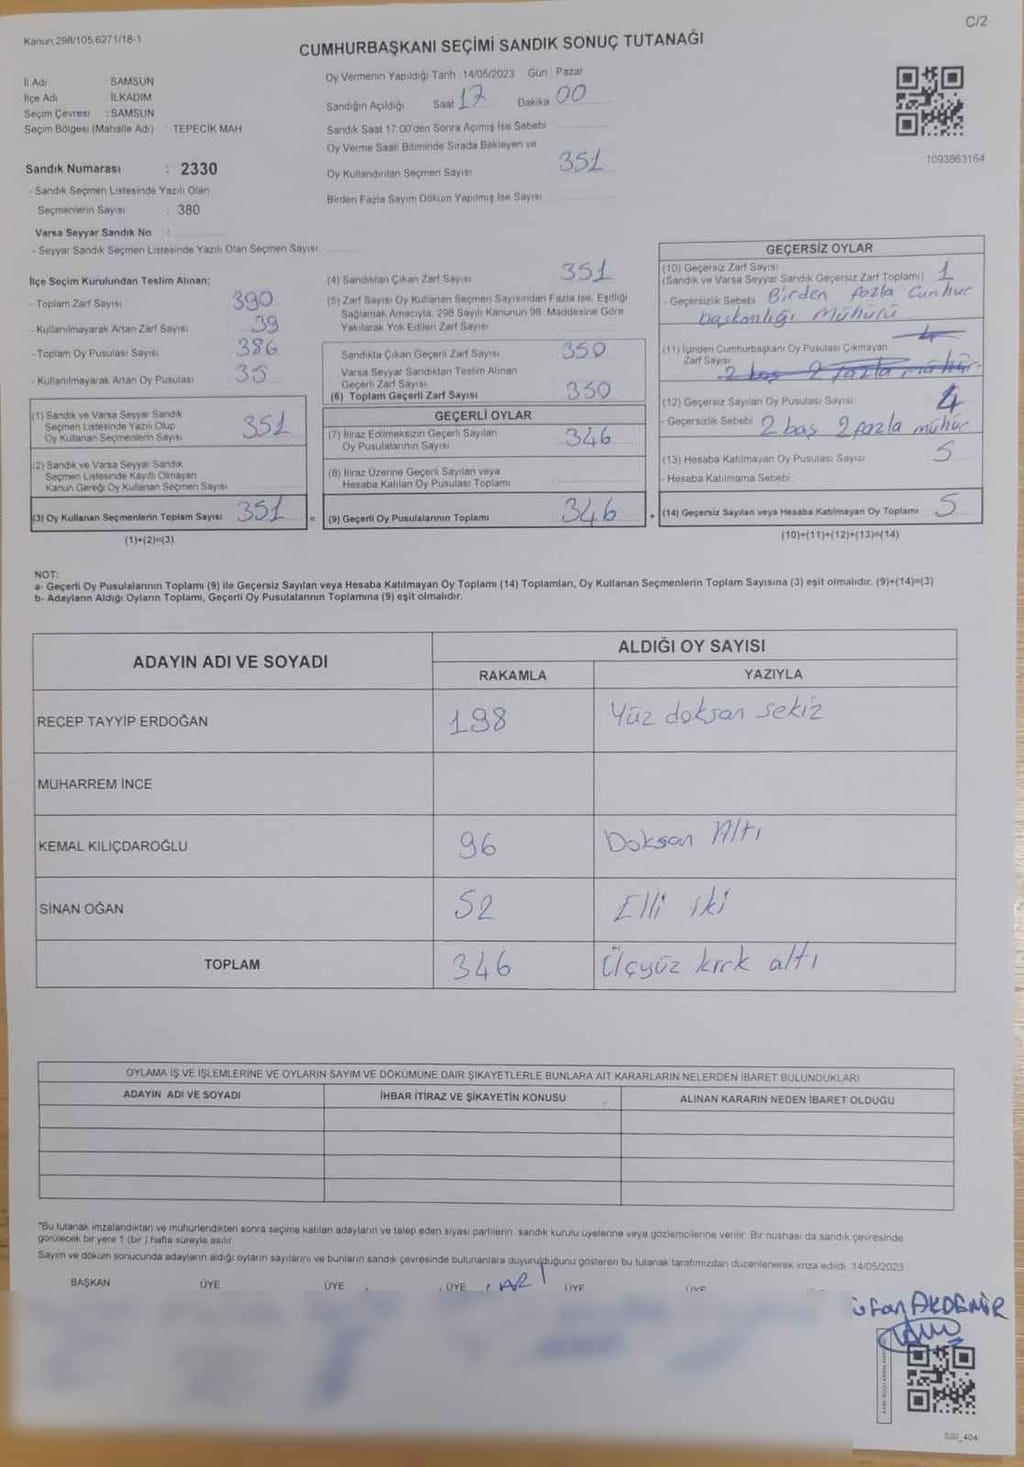 C/2
Kanun:298/105.6271/18-1
CUMHURBAŞKANI SEÇİMİ SANDIK SONUÇ TUTANAĞI
İl Adı SAMSUN
İlçe Adı İLKADIM
Seçim Çevresi : SAMSUN
Seçim Bölgesi (Mahalle Adı) : TEPECİK MAH
Oy Vermenin Yapıldığı Tarih : 14/05/2023 Gün : Pazar
Sandığın Açıldığı Saat 17 Dakika 00
Sandık Saat 17:00'den Sonra Açımış İse Sebebi
Oy Verme Saati Bitiminde Sırada Bekleyen ve
Oy Kullandırılan Seçmen Sayısı 351
Birden Fazla Sayım Döküm Yapılmış İse Sayısı
1093863164
Sandık Numarası : 2330
- Sandık Seçmen Listesinde Yazılı Olan
Seçmenlerin Sayısı : 380
Varsa Seyyar Sandık No :
- Seyyar Sandık Seçmen Listesinde Yazılı Olan Seçmen Sayısı
İlçe Seçim Kurulundan Teslim Alınan;
- Toplam Zarf Sayısı 390
- Kullanılmayarak Artan Zarf Sayısı 39
- Toplam Oy Pusulası Sayısı 386
- Kullanılmayarak Artan Oy Pusulası 35
(1) Sandık ve Varsa Seyyar Sandık
Seçmen Listesinde Yazılı Olup
Oy Kullanan Seçmenlerin Sayısı 351
(2) Sandık ve Varsa Seyyar Sandık
Seçmen Listesinde Kayıtlı Olmayan
Kanun Gereği Oy Kullanan Seçmen Sayısı
(3) Oy Kullanan Seçmenlerin Toplam Sayısı 351 =
(1)+(2)=(3)
(4) Sandıktan Çıkan Zarf Sayısı 351
(5) Zarf Sayısı Oy Kullanan Seçmen Sayısından Fazla İse, Eşitliği
Sağlamak Amacıyla, 298 Sayılı Kanunun 98. Maddesine Göre
Yakılarak Yok Edilen Zarf Sayısı
Sandıkta Çıkan Geçerli Zarf Sayısı 350
Varsa Seyyar Sandıktan Teslim Alınan
Geçerli Zarf Sayısı
(6) Toplam Geçerli Zarf Sayısı 350
GEÇERLİ OYLAR
(7) İtiraz Edilmeksizin Geçerli Sayılan
Oy Pusulalarının Sayısı 346
(8) İtiraz Üzerine Geçerli Sayılan veya
Hesaba Katılan Oy Pusulası Toplamı
(9) Geçerli Oy Pusulalarının Toplamı 346 +
GEÇERSİZ OYLAR
(10) Geçersiz Zarf Sayısı
(Sandık ve Varsa Seyyar Sandık Geçersiz Zarf Toplamı) 1
- Geçersizlik Sebebi Birden fazla Cumhur
başkanlığı Mühürü
(11) İçinden Cumhurbaşkanı Oy Pusulası Çıkmayan 4
Zarf Sayısı
2 boş 2 fazla mühür
(12) Geçersiz Sayılan Oy Pusulası Sayısı 4
- Geçersizlik Sebebi 2 boş 2 fazla mühür
(13) Hesaba Katılmayan Oy Pusulası Sayısı 5
- Hesaba Katılmama Sebebi
(14) Geçersiz Sayılan veya Hesaba Katılmayan Oy Toplamı : 5
(10)+(11)+(12)+(13)=(14)
NOT:
a- Geçerli Oy Pusulalarının Toplamı (9) ile Geçersiz Sayılan veya Hesaba Katılmayan Oy Toplamı (14) Toplamları, Oy Kullanan Seçmenlerin Toplam Sayısına (3) eşit olmalıdır. (9)+(14)=(3)
b- Adayların Aldığı Oyların Toplamı, Geçerli Oy Pusulalarının Toplamına (9) eşit olmalıdır.
ADAYIN ADI VE SOYADI ALDIĞI OY SAYISI
RAKAMLA YAZIYLA
RECEP TAYYİP ERDOĞAN 198 Yüz doksan sekiz
MUHARREM İNCE
KEMAL KILIÇDAROĞLU 96 Doksan Altı
SİNAN OĞAN 52 Elli iki
TOPLAM 346 Üçyüz kırk altı
OYLAMA İŞ VE İŞLEMLERİNE VE OYLARIN SAYIM VE DÖKÜMÜNE DAİR ŞİKAYETLERLE BUNLARA AİT KARARLARIN NELERDEN İBARET BULUNDUKLARI
ADAYIN ADI VE SOYADI İHBAR İTİRAZ VE ŞİKAYETİN KONUSU ALINAN KARARIN NEDEN İBARET OLDUĞU
"Bu tutanak imzalandıktan ve mühürlendikten sonra seçime katılan adayların ve talep eden siyasi partilerin sandık kurulu üyelerine veya gözlemcilerine verilir. Bir nushası da sandık çevresinde
görülecek bir yere 1 (bir ) hafta süreyle asılır.
Sayım ve döküm sonucunda adayların aldığı oyların sayılarını ve bunların sandık çevresinde bulunanlara duyurulduğunu gösteren bu tutanak tarafımızdan düzenlenerek imza edildi. 14/05/2023
BAŞKAN ÜYE ÜYE ÜYE ÜYE ÜYE
AKDEMİR
SSI_404